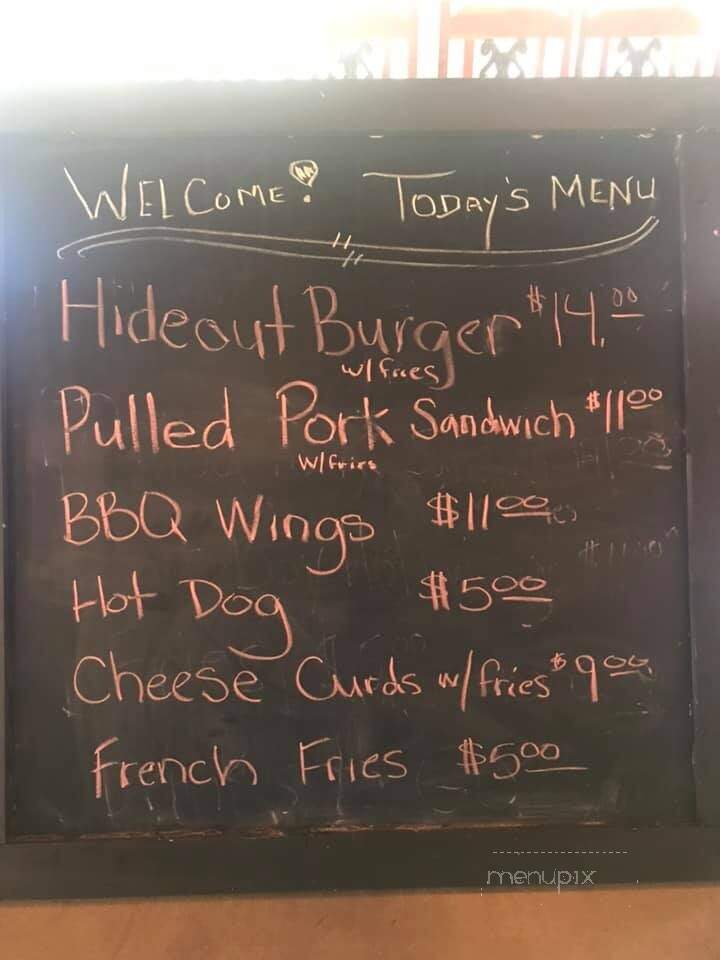 WELCOME! TODAY'S MENU
Hideout Burger $14.00
w/ fries
Pulled Pork Sandwich $11.00
w/ fries
BBQ Wings $11.00
Hot Dog $5.00
Cheese Curds w/ fries $9.00
French Fries $5.00
menupix